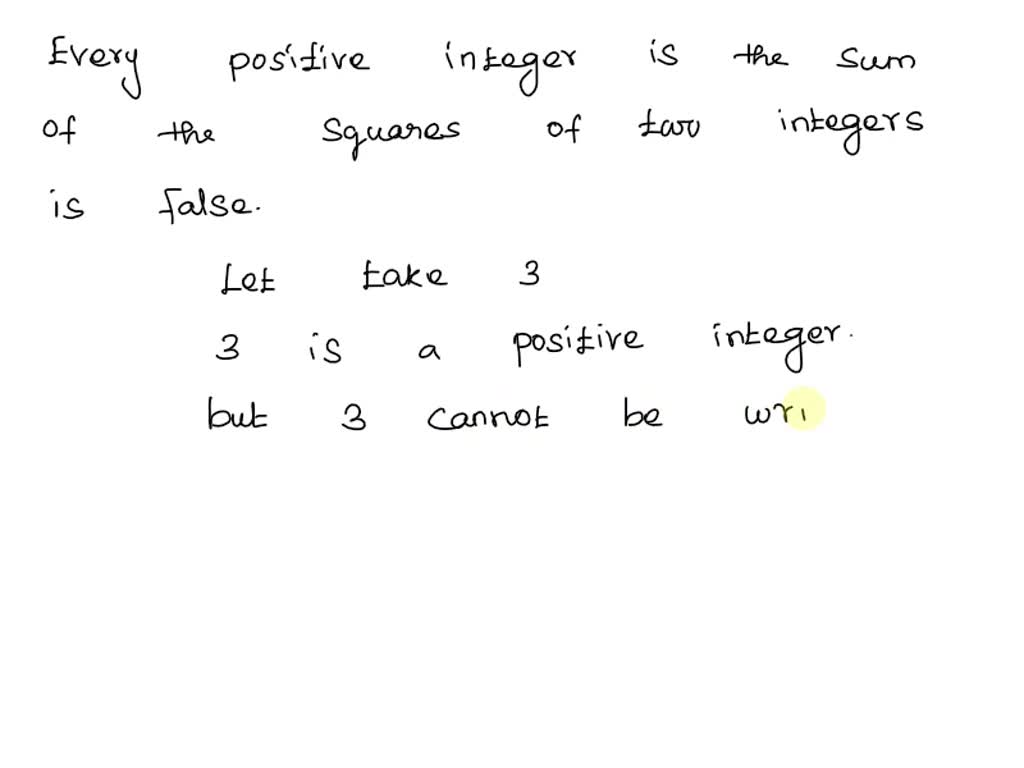 Every positive integer is the sum
of the squares of two integers
is false.
Let take 3
3 is a positive integer.
but 3 cannot be wri